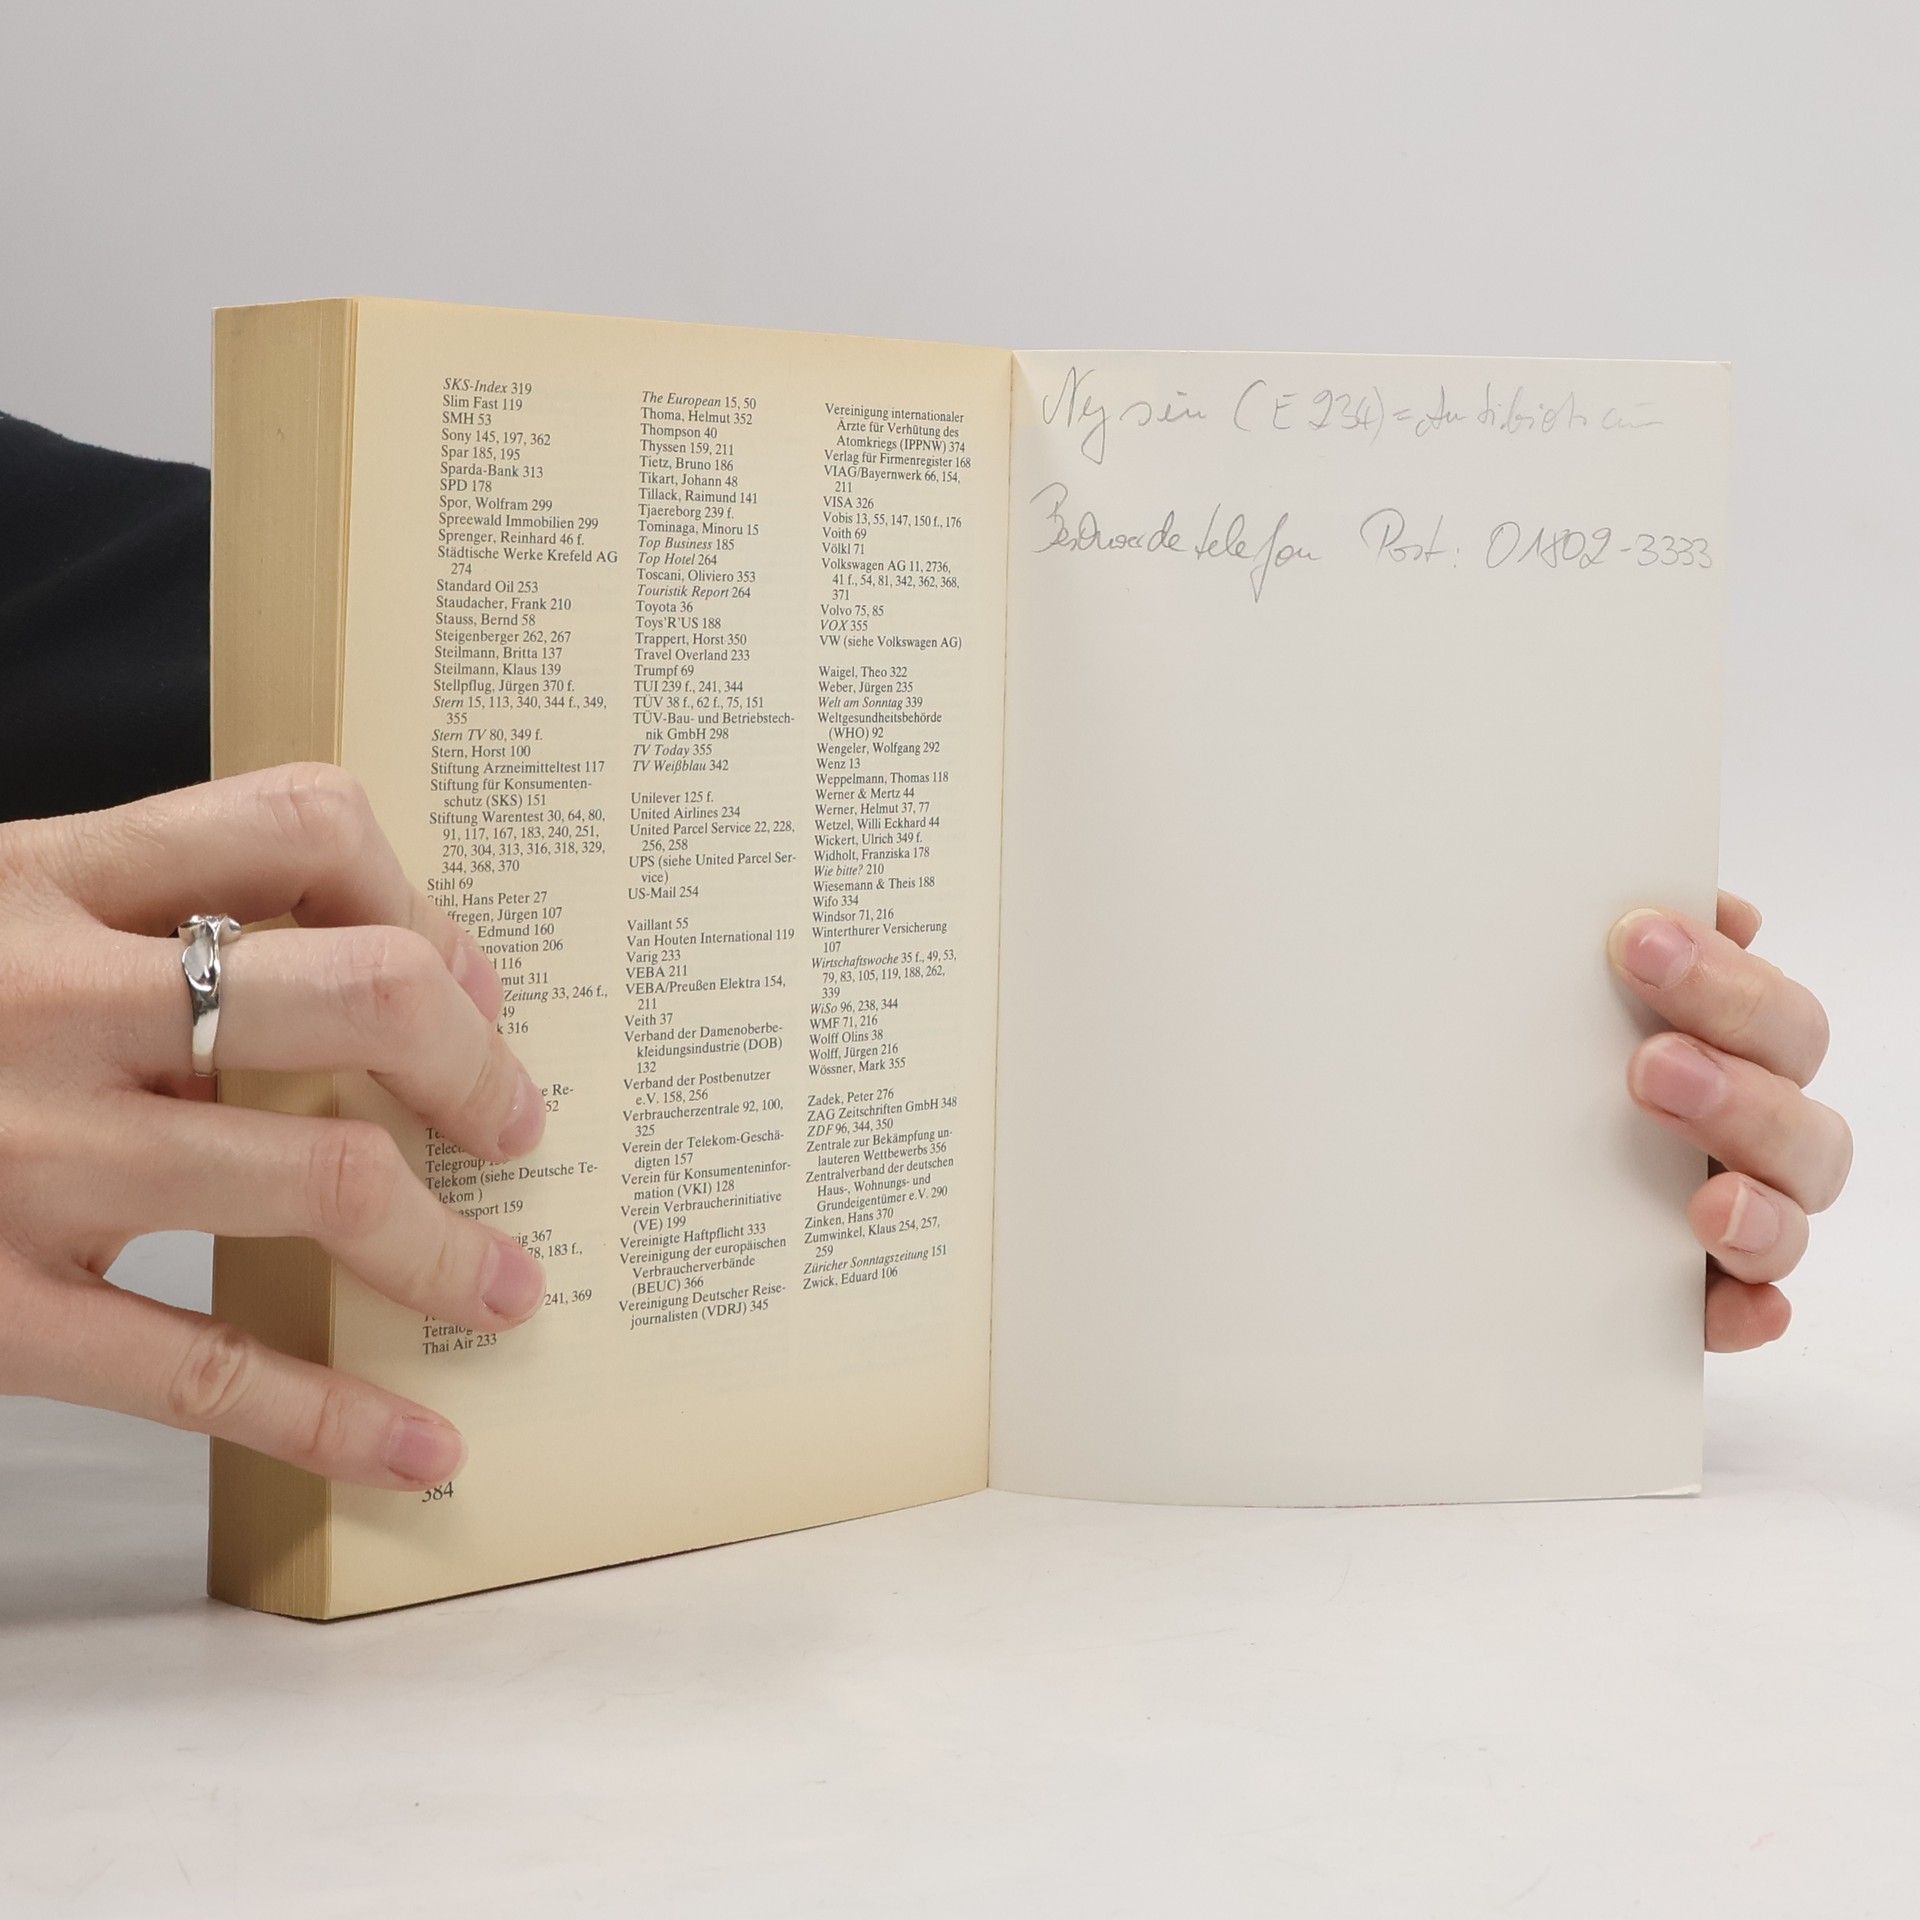 SKS-Index 319
Slim Fast 119
SMH 53
Sony 145, 197, 362
Spar 185, 195
Sparda-Bank 313
SPD 178
Spor, Wolfram 299
Spreewald Immobilien 299
Sprenger, Reinhard 46 f.
Städtische Werke Krefeld AG
274
Standard Oil 253
Staudacher, Frank 210
Stauss, Bernd 58
Steigenberger 262, 267
Steilmann, Britta 137
Steilmann, Klaus 139
Stellpflug, Jürgen 370 f.
Stern 15, 113, 340, 344 f., 349,
355
Stern TV 80, 349 f.
Stern, Horst 100
Stiftung Arzneimitteltest 117
Stiftung für Konsumenten-
schutz (SKS) 151
Stiftung Warentest 30, 64, 80,
91, 117, 167, 183, 240, 251,
270, 304, 313, 316, 318, 329,
344, 368, 370
Stihl 69
Stihl, Hans Peter 27
ffregen, Jürgen 107
Edmund 160
nnovation 206
116
mut 311
Zeitung 33, 246 f.,
49
k 316
e Re-
52
Telegroup
Telekom (siehe Deutsche Te-
lekom )
ssport 159
ig 367
78, 183 f.,
241, 369
Thai Air 233
384
The European 15, 50
Thoma, Helmut 352
Thompson 40
Thyssen 159, 211
Tietz, Bruno 186
Tikart, Johann 48
Tillack, Raimund 141
Tjaereborg 239 f.
Tominaga, Minoru 15
Top Business 185
Top Hotel 264
Toscani, Oliviero 353
Touristik Report 264
Toyota 36
Toys'R'US 188
Trappert, Horst 350
Travel Overland 233
Trumpf 69
TUI 239 f., 241, 344
TÜV 38 f., 62 f., 75, 151
TÜV-Bau- und Betriebstech-
nik GmbH 298
TV Today 355
TV Weißblau 342
Unilever 125 f.
United Airlines 234
United Parcel Service 22, 228,
256, 258
UPS (siehe United Parcel Ser-
vice)
US-Mail 254
Vaillant 55
Van Houten International 119
Varig 233
VEBA 211
VEBA/Preußen Elektra 154,
211
Veith 37
Verband der Damenoberbe-
kleidungsindustrie (DOB)
132
Verband der Postbenutzer
e.V. 158, 256
Verbraucherzentrale 92, 100,
325
Verein der Telekom-Geschä-
digten 157
Verein für Konsumenteninfor-
mation (VKI) 128
Verein Verbraucherinitiative
(VE) 199
Vereinigte Haftpflicht 333
Vereinigung der europäischen
Verbraucherverbände
(BEUC) 366
Vereinigung Deutscher Reise-
journalisten (VDRJ) 345
Vereinigung internationaler
Ärzte für Verhütung des
Atomkriegs (IPPNW) 374
Verlag für Firmenregister 168
VIAG/Bayernwerk 66, 154,
211
VISA 326
Vobis 13, 55, 147, 150 f., 176
Voith 69
Völkl 71
Volkswagen AG 11, 2736,
41 f., 54, 81, 342, 362, 368,
371
Volvo 75, 85
VOX 355
VW (siehe Volkswagen AG)
Waigel, Theo 322
Weber, Jürgen 235
Welt am Sonntag 339
Weltgesundheitsbehörde
(WHO) 92
Wengeler, Wolfgang 292
Wenz 13
Weppelmann, Thomas 118
Werner & Mertz 44
Werner, Helmut 37, 77
Wetzel, Willi Eckhard 44
Wickert, Ulrich 349 f.
Widholt, Franziska 178
Wie bitte? 210
Wiesemann & Theis 188
Wifo 334
Windsor 71, 216
Winterthurer Versicherung
107
Wirtschaftswoche 35 f., 49, 53,
79, 83, 105, 119, 188, 262,
339
WiSo 96, 238, 344
WMF 71, 216
Wolff Olins 38
Wolff, Jürgen 216
Wössner, Mark 355
Zadek, Peter 276
ZAG Zeitschriften GmbH 348
ZDF 96, 344, 350
Zentrale zur Bekämpfung un-
lauteren Wettbewerbs 356
Zentralverband der deutschen
Haus-, Wohnungs- und
Grundeigentümer e.V. 290
Zinken, Hans 370
Zumwinkel, Klaus 254, 257,
259
Züricher Sonntagszeitung 151
Zwick, Eduard 106
(E 234) = Antibioticum
Beschwerdetelefon Post: 01802-3333